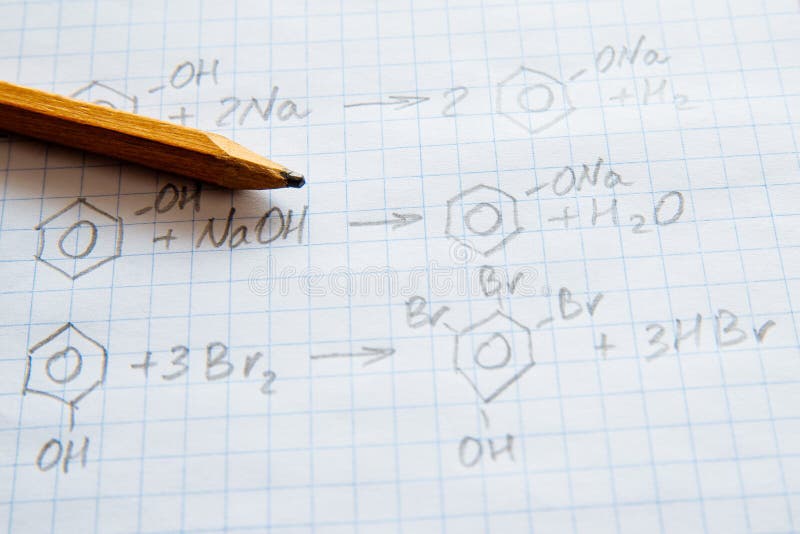 -OH + 2Na → 2 -ONa + H2
-OH + NaOH → -ONa + H2O
Br Br Br
+ 3Br2 → + 3HBr
OH OH
dreamstime